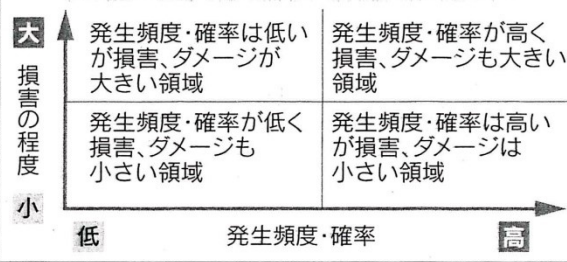 大
損害の程度
小
発生頻度・確率は低い
が損害、ダメージが
大きい領域
発生頻度・確率が高く
損害、ダメージも大きい
領域
発生頻度・確率が低く
損害、ダメージも
小さい領域
発生頻度・確率は高い
が損害、ダメージは
小さい領域
低
発生頻度・確率
高